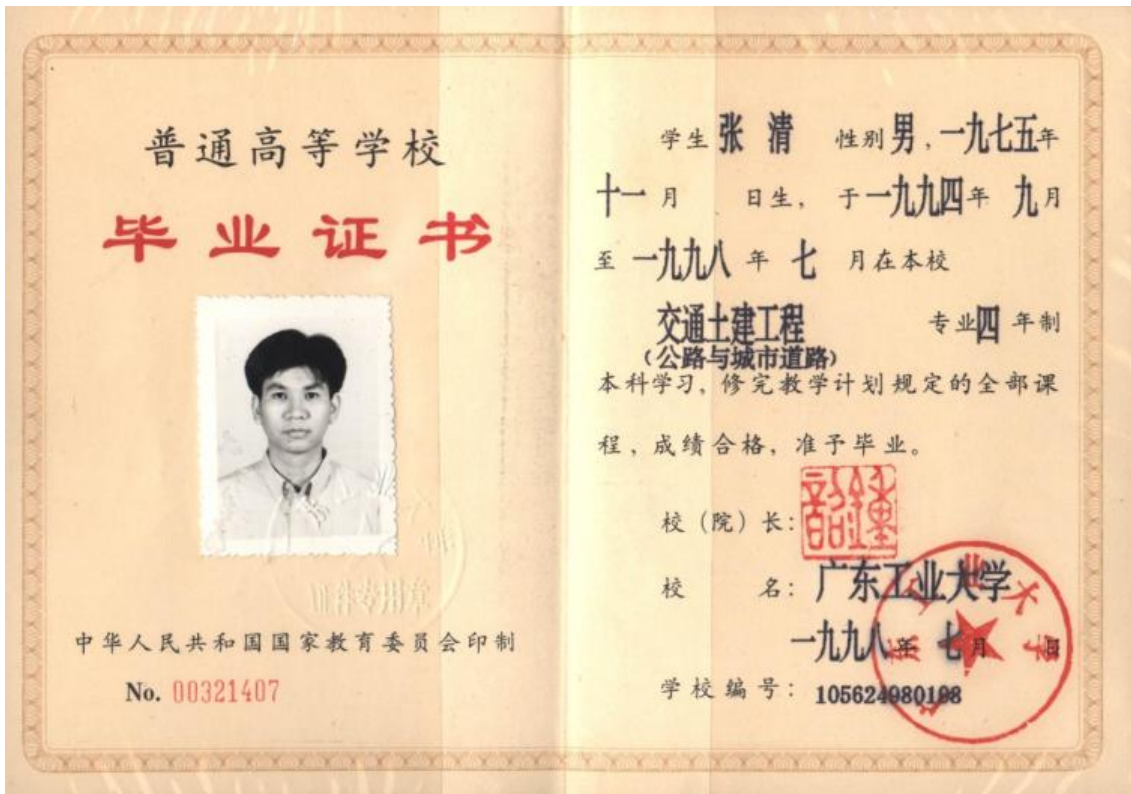 普通高等学校
毕业证书
中华人民共和国国家教育委员会印制
No. 00321407
学生 张 清 性别 男，一九七五年
十一月 日生，于一九九四年 九月
至 一九九八 年 七 月在本校
交通土建工程 专业四 年制
（公路与城市道路）
本科学习，修完教学计划规定的全部课
程，成绩合格，准予毕业。
校（院）长：
校 名：广东工业大学
一九九八年 七月 日
学校编号：105624980198
广东工业大学